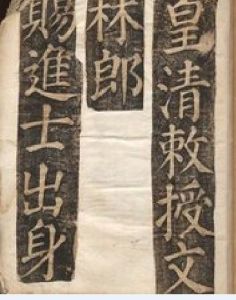 皇清敕授文
林郎
賜進士出身